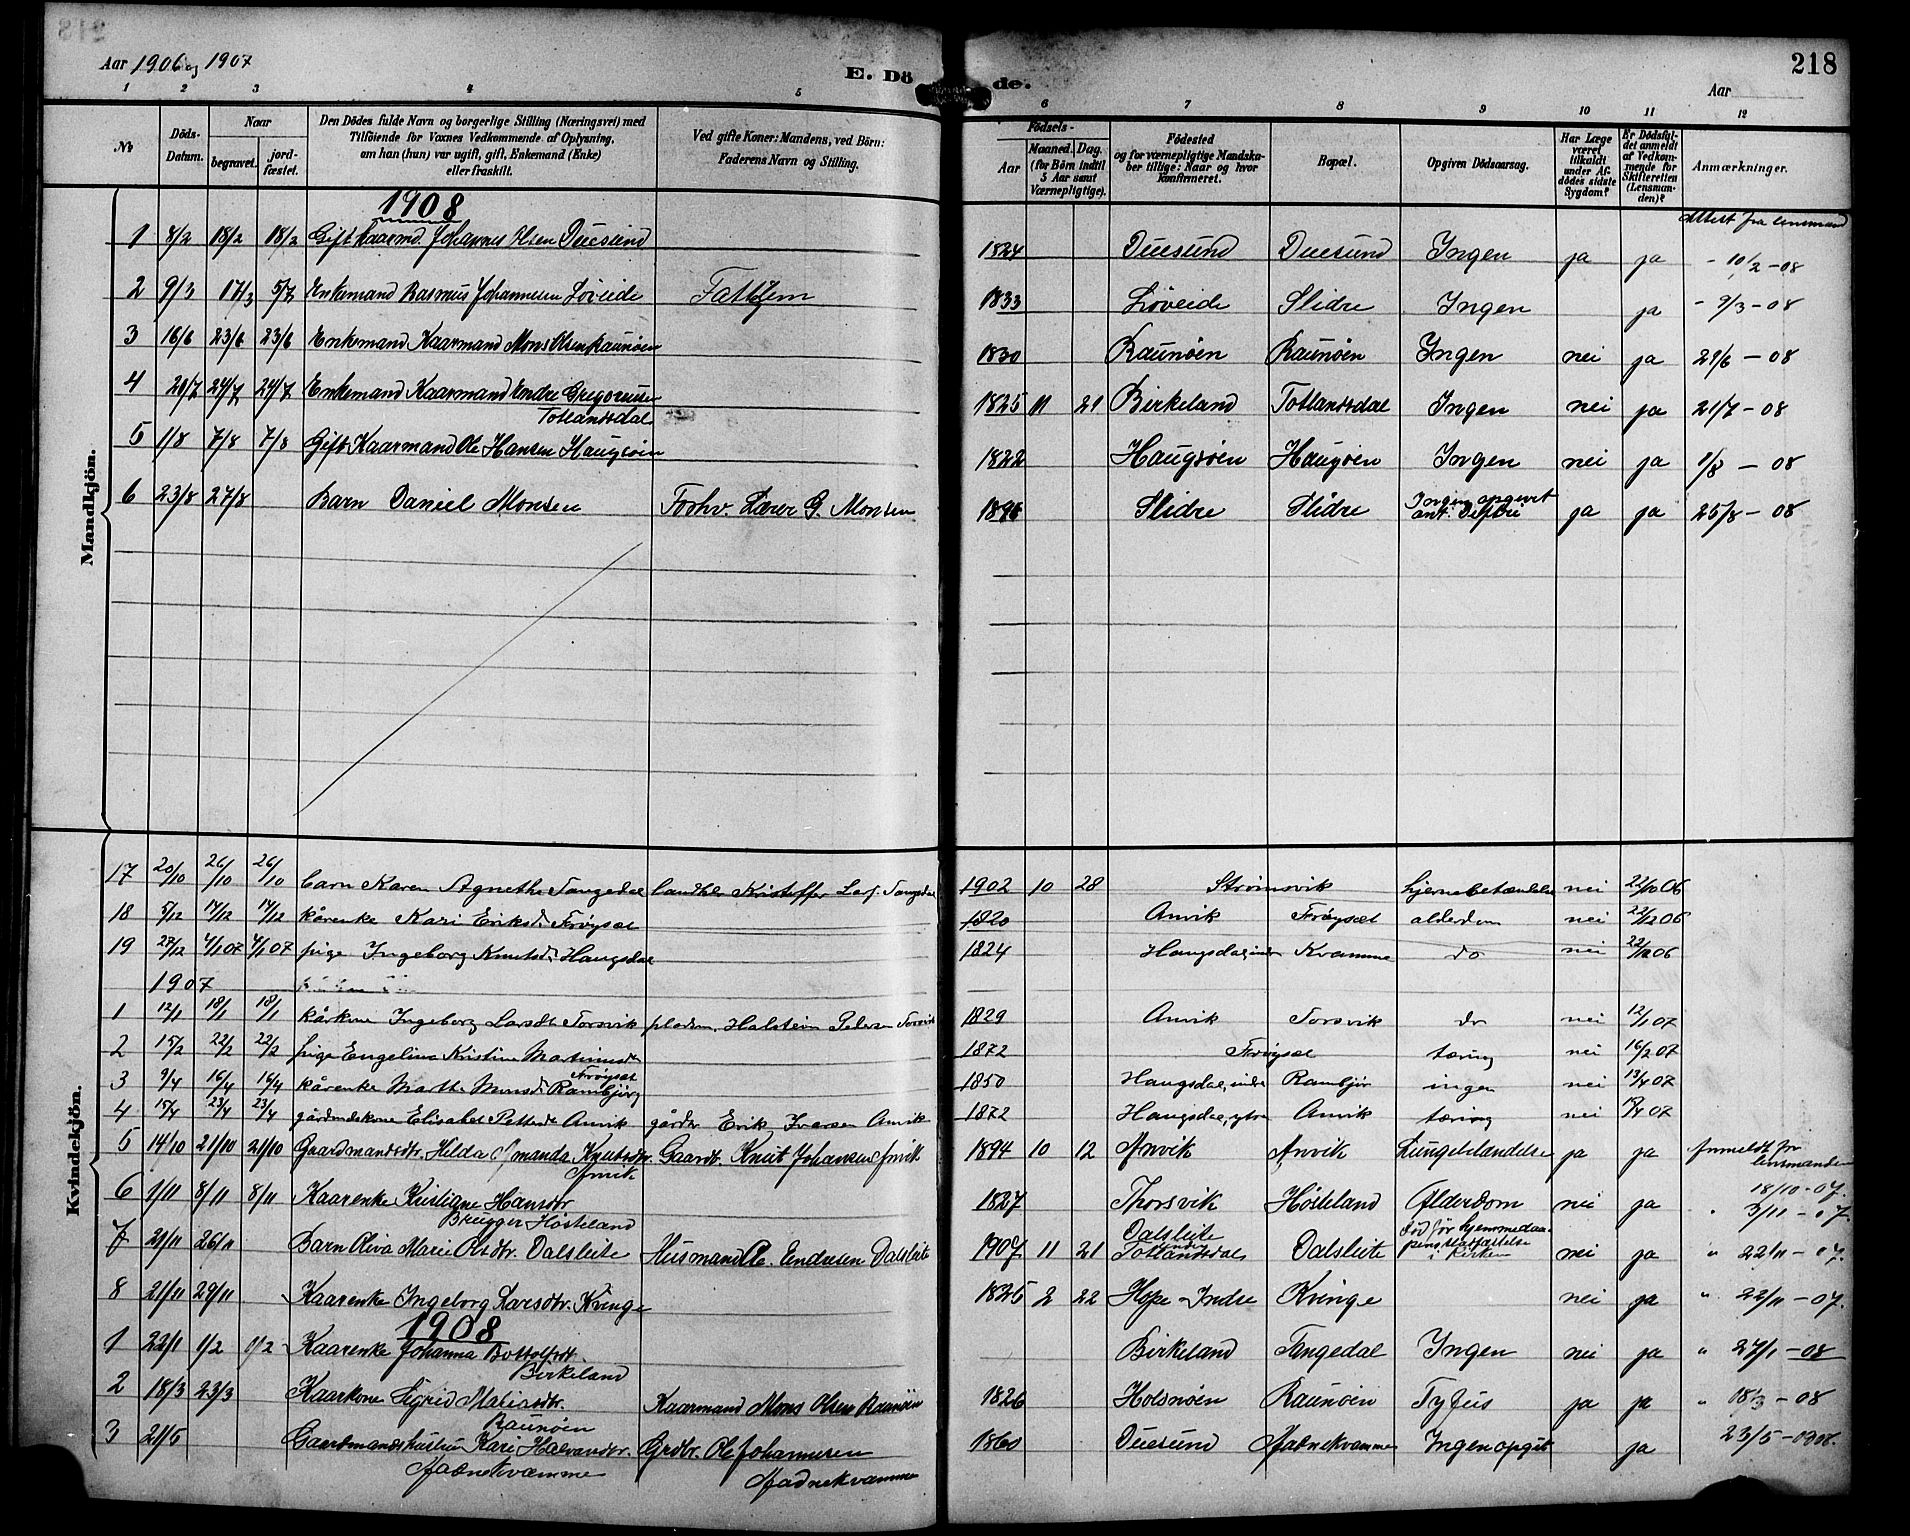 Aar 1906 og 1907
E. Döde.
218
Aar
1 2 3 4 5 6 7 8 9 10 11 12
No
Döds-Datum.
Naar
begravet.
jordfæstet.
Den Dödes fulde Navn og borgerlige Stilling (Næringsvei) med
Tilföiende for Voxnes Vedkommende af Oplysning,
om han (hun) var ugift, gift, Enkemand (Enke)
eller fraskilt.
Ved gifte Koner: Mandens, ved Börn:
Faderens Navn og Stilling.
Födsels-
Aar
Maaned. Dag.
(for Börn indtil
5 Aar samt
Værnepligtige).
Födested
og for værnepligtige Mandska-
ber tillige: Naar og hvor
konfirmeret.
Bopæl.
Opgiven Dödsaarsag.
Har Læge
været
tilkaldt
under Af-
dödes sidste
Sygdom?
Er Dödsfal-
det anmeldt
af Vedkom-
mende for
Skifteretten
(Lensman-
den)?
Anmærkninger.
Mandkjön.
1908
Attest fra lensmand
1 8/2 18/2 18/2 Gift Kaarmd. Johannes Olsen Duesund 1824 Duesund Duesund Ingen ja ja - 10/2 - 08
2 9/3 17/3 5/7 Enkemand Rasmus Johannesen Löveide Fattiglem 1833 Löveide Slidre Ingen ja - 9/3 - 08
3 16/6 23/6 23/6 Enkemand Kaarmand Mons Olsen Raunöen 1830 Raunöen Raunöen Ingen nei ja 21/6 - 08
4 20/7 24/7 24/7 Enkemand Kaarmand Endre Gregoriusen
Totlandsdal 1825 11 21 Birkeland Totlandsdal Ingen nei ja 21/7 - 08
5 1/8 7/8 7/8 Gift Kaarmand Ole Hansen Haugsöen 1822 Haugsöen Haugsöen Ingen nei ja 1/8 - 08
6 23/8 27/8 Barn Daniel Monsen Forhv. Lærer G. Monsen Slidre Slidre Ingen opgivet
ant. Difteri ja ja 25/8 - 08
Kvindekjön.
17 20/10 26/10 26/10 barn Karen Agnethe Tangedal landhdl. Kristoffer Tangedal 1902 10 28 Strömsvik hjernebetændelse nei 22/10 06
18 5/12 14/12 14/12 kårenke Kari Eriksd. Fröyset 1820 Anvik Fröyset alderdom nei 22/12 06
19 27/12 4/1 07 4/1 07 pige Ingeborg Knutsd. Haugsdal 1824 Haugsdal, indre Kvamme do nei
1907
1 12/1 18/1 18/1 kårkone Ingeborg Larsdt. Torsvik Halstein Petersen Torsvik 1829 Anvik Torsvik do nei 12/1 07
2 15/2 22/2 22/2 pige Engeline Kristine Martinusdt.
Fröyset 1872 Fröyset tæring nei 16/2 07
3 9/4 16/4 16/4 kårenke Marthe Monsd. Rambjörg 1850 Haugsdal, indre Rambjör ingen nei 13/4 07
4 15/4 23/4 23/4 gårdmdskone Elisabet Pettersd. Anvik gårdbr. Erik Iversen Anvik 1872 Haugsdal, ytre Anvik tæring nei 07
5 14/10 21/10 21/10 Gaardmandsdtr. Hilda Amanda Knutsdtr.
Anvik Gaardb. Knut Johansen Anvik 1894 10 12 Anvik Anvik Lungebetændelse ja ja Anmeldt for
lensmanden
18/10 - 07.
6 1/11 8/11 8/11 Kaarenke Kristiane Hansdtr.
Brugger Hösteland 1827 Thorsvik Hösteland Alderdom nei ja " 3/11 - 07
7 21/11 26/11 Barn Oliva Marie Olsdtr. Dalsleite Husmand Ole Endresen Dalsleite 1907 11 21 Dalsleite
under
Totlandsdal Dalsleite Död för hjemmedaa-
pens stadfæstelse
i Kirken nei ja " 22/11 - 07.
8 21/11 29/11 Kaarenke Ingeborg Larsdtr. Kvinge 2 22 Hope Indre Kvinge nei ja " 22/11 - 07.
1908
1 22/1 1/2 1/2 Kaarenke Johanna Bottolfsdt.
Birkeland Birkeland Tangedal Ingen nei ja " 27/1 - 08
2 18/3 23/3 Kaarkone Sigrid Matisdtr.
Raunöen Kaarmand Mons Olsen Raunöen 1826 Holsnöen Raunöen Tyfus ja ja " 18/3 - 08
3 21/5 Gaardmandshustru Kari Halvardsdtr.
Aadnekvamme Grdbr. Ole Johannesen
Aadnekvamme 1860 Duesund Aadnekvamme Ingen opgit ja 23/5 - 1908.